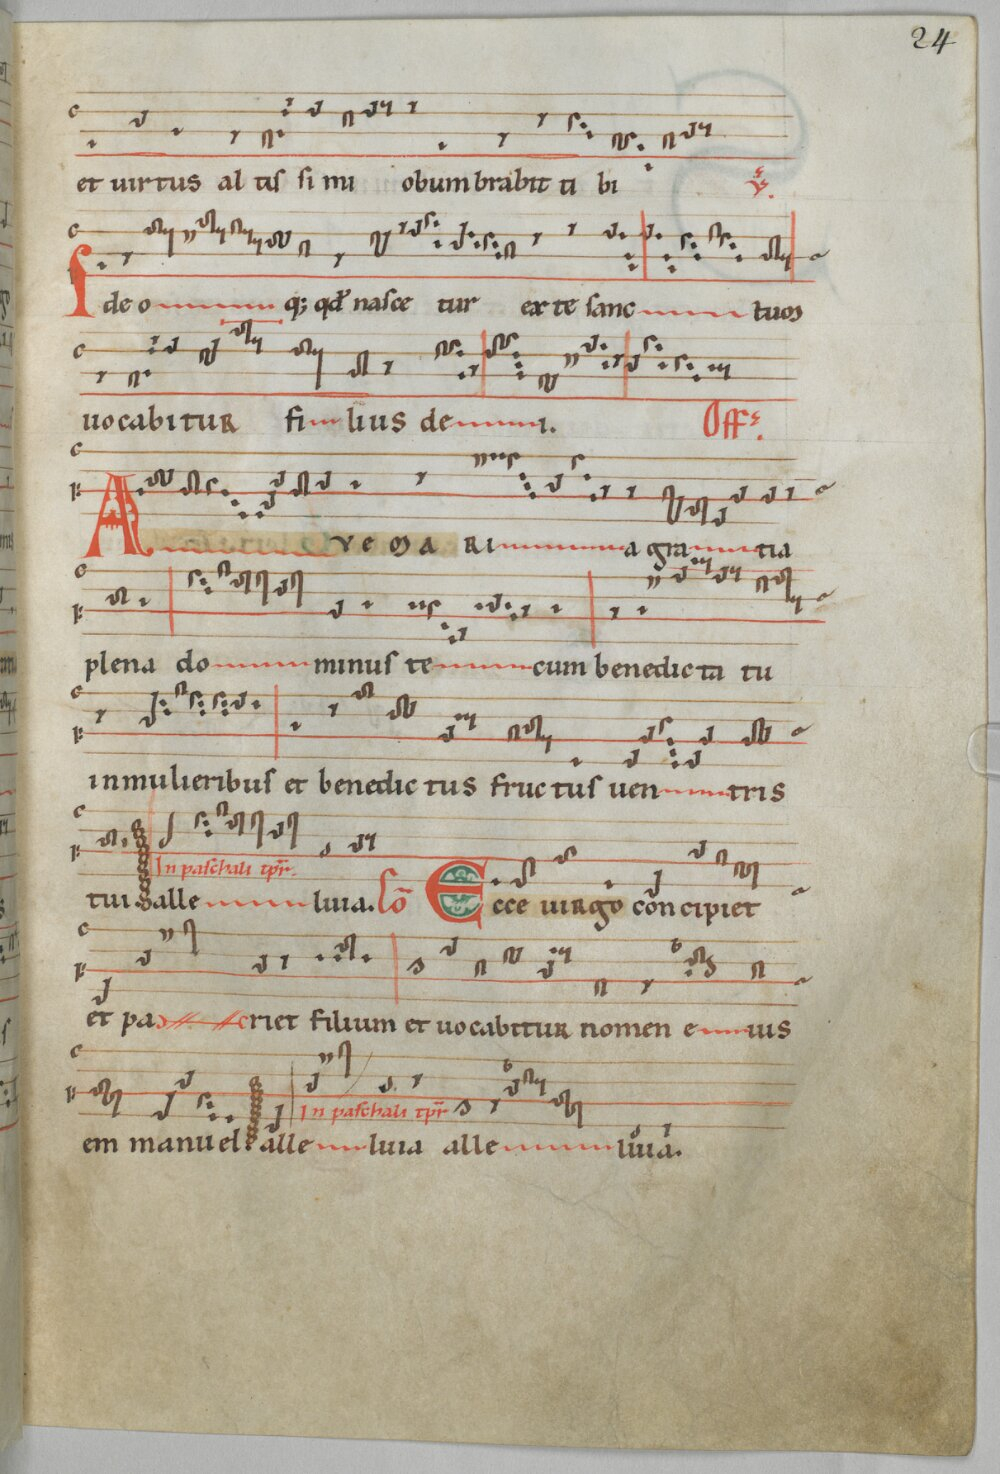 24
et uirtus al tis si mi obumbrabit ti bi ℣.
I de o q; qd nasce tur ex te sanc tum
uocabitur fi lius de i. Off.
A ve ma ri a gra tia
plena do minus te cum benedicta tu
in mulieribus et benedic tus fruc tus uen tris
In paschali tpr.
tui alle luia. Co Ecce uirgo concipiet
et pa riet filium et uocabitur nomen e ius
In paschali tpr
em manuel alle luia alle luia.